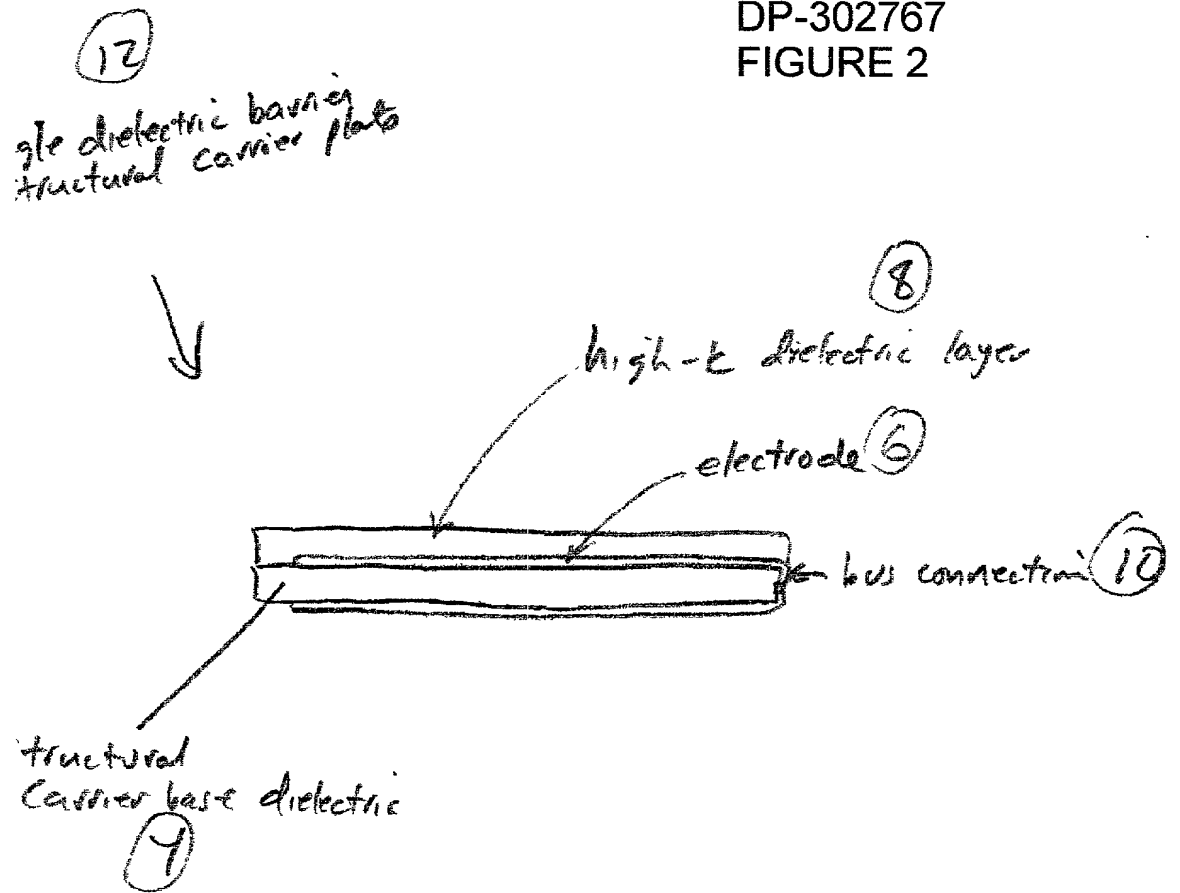 DP-302767
FIGURE 2
12
gle dielectric barrier
tructural carrier plate
8
high-k dielectric layer
electrode 6
bus connection 10
tructural
Carrier base dielectric
4